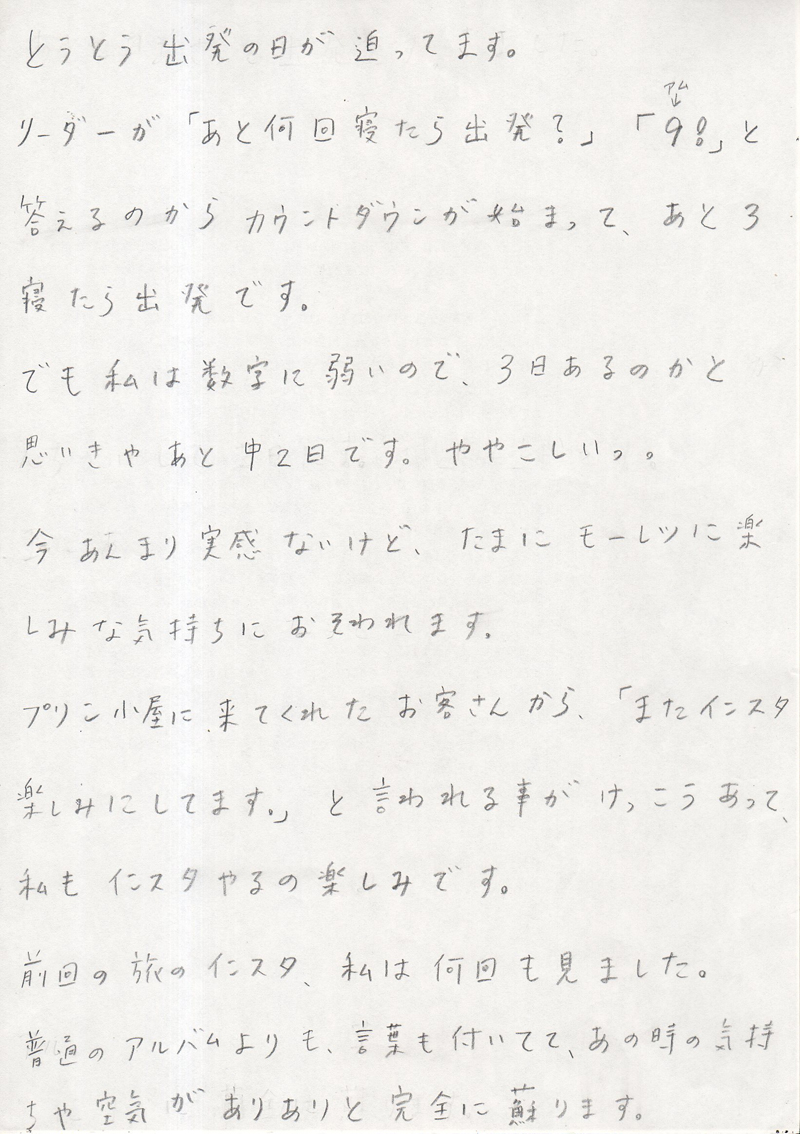 とうとう出発の日が迫ってます。
アム
↓
リーダーが「あと何回寝たら出発?」「9!!」と
答えるのからカウントダウンが始まって、あと3
寝たら出発です。
でも私は数字に弱いので、3日あるのかと
思いきやあと中2日です。ややこしいっ。
今あんまり実感ないけど、たまにモーレツに楽
しみな気持ちにおそわれます。
プリン小屋に来てくれたお客さんから、「またインスタ
楽しみにしてます。」と言われる事がけっこうあって、
私もインスタやるの楽しみです。
前回の旅のインスタ、私は何回も見ました。
普通のアルバムよりも、言葉も付いてて、あの時の気持
ちや空気がありありと完全に蘇ります。